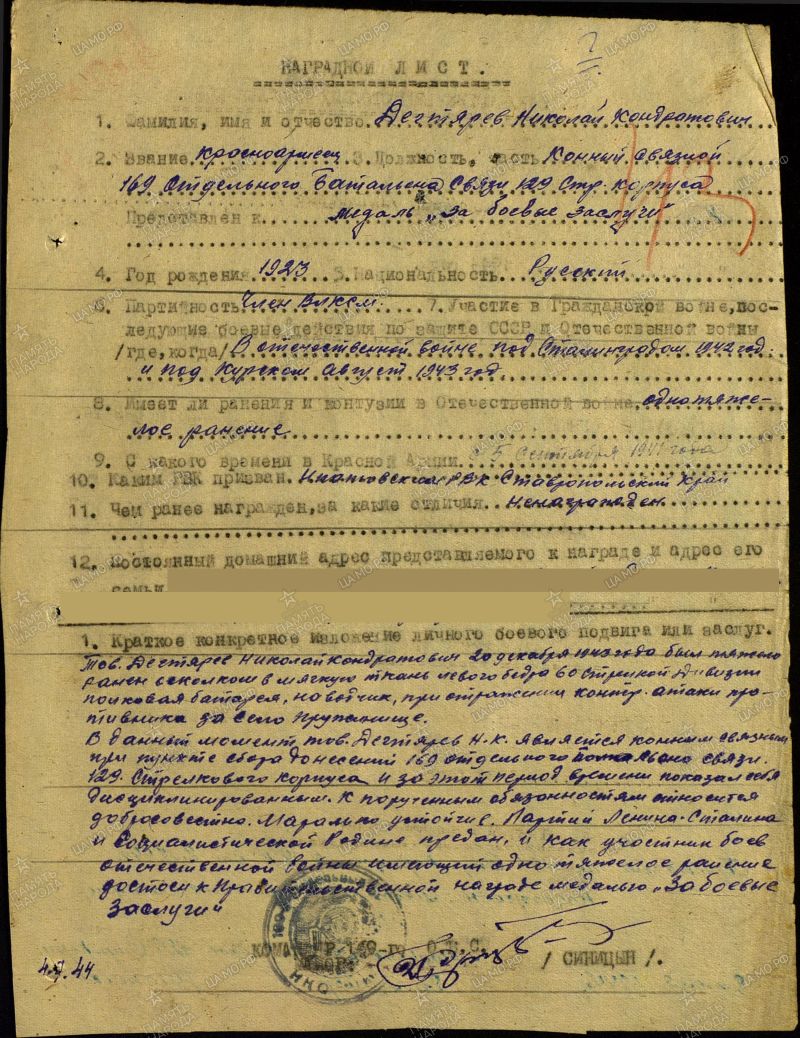 НАГРАДНОЙ ЛИСТ.
1. Фамилия, имя и отчество Дегтярев Николай Кондратович
2. Звание красноармеец 3. Должность, часть Конный связной
169 Отдельного Баталына Связи 129 Стр. Корпуса
Представлен к медаль „за боевые заслуги“
4. Год рождения 1923 5. Национальность Русский
6. Партийность Член ВЛКСМ 7. Участие в Гражданской войне, пос-
ледующие боевые действия по защите СССР и Отечественной войны
/где, когда/ В отечественной войне под Сталинградом 1942 год
и под Курском август 1943 год
8. Имеет ли ранения и контузии в Отечественной войне, одно тяже-
лое ранение
9. С какого времени в Красной Армии с 5 сентября 1941 года
10. Каким РВК призван. Ипатовский РВК Ставропольский Край
11. Чем ранее награжден, за какие отличия. ненагражден
12. Постоянный домашний адрес представляемого к награде и адрес его
семьи
1. Краткое конкретное изложение личного боевого подвига или заслуг.
Тов. Дегтярев Николай Кондратович 20 декабря 1943 года был тяжело
ранен осколком в мягкую ткань левого бедра 60 стрелкой дивизии
полковая батарея, наводчик, при отражении контр. атаки про-
тивника за село Прупанище.
В данный момент тов. Дегтярев Н.К. является конным связным
при пункте сбора донесений 169 отдельного связи.
129. Стрелкового корпуса и за этот период времени показал себя
дисциплинированным. К порученным обязанностям относится
добросовестно. Морально устойчив. Партии Ленина-Сталина
и Социалистической Родине предан, и как участник боев
отечественной войны имеющий одно тяжелое ранение
достоин к Правительственной награде медалью „За боевые
Заслуги“
КОМАНДИР 169-го О.Б.С.
4.7.44 / СИНИЦЫН /.